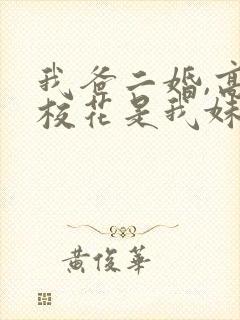 我爸二婚,高
校花是我妹
黄俊华